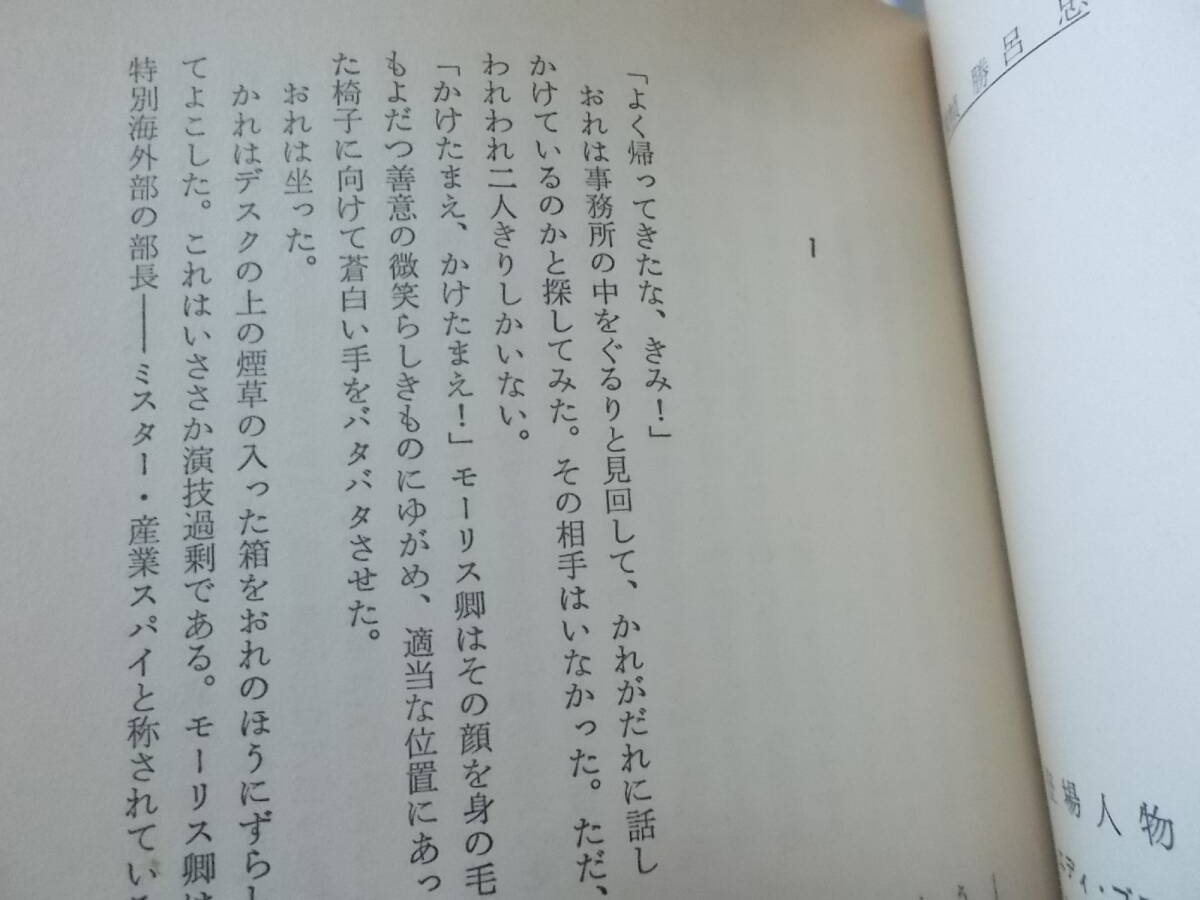 勝呂忠
登場人物
1
「よく帰ってきたな、きみ！」
おれは事務所の中をぐるりと見回して、かれがだれに話し
かけているのかと探してみた。その相手はいなかった。ただ、
われわれ二人きりしかいない。
「かけたまえ、かけたまえ！」モーリス卿はその顔を身の毛
もよだつ善意の微笑らしきものにゆがめ、適当な位置にあっ
た椅子に向けて蒼白い手をバタバタさせた。
おれは坐った。
かれはデスクの上の煙草の入った箱をおれのほうにずらし
てよこした。これはいささか演技過剰である。モーリス卿は
特別海外部の部長――ミスター・産業スパイと称されている